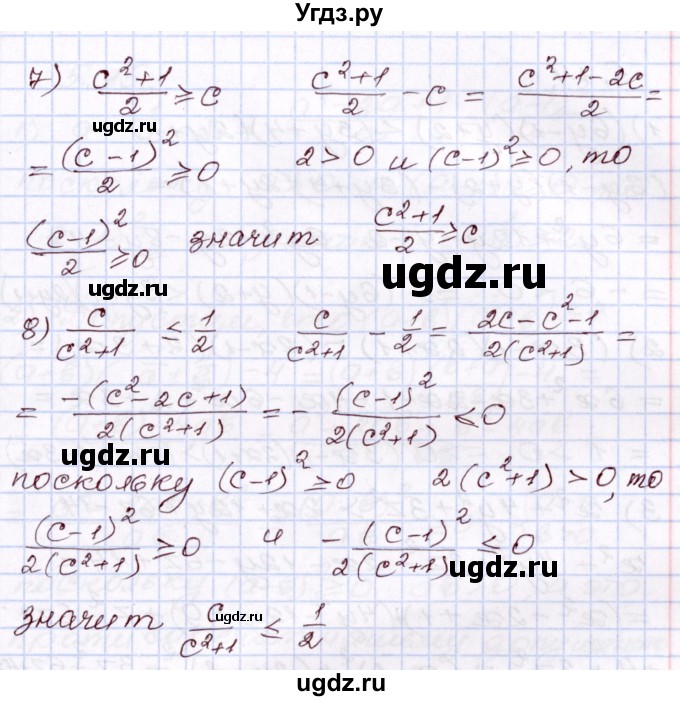 Угдз.ру
7) (c²+1)/2 ≥ c   (c²+1)/2 − c = (c²+1−2c)/2 =
ugdz.ru
= (c−1)²/2 ≥ 0   2>0 и (c−1)²≥0, то
(c−1)²/2 ≥ 0 значит (c²+1)/2 ≥ c
ugdz.ru ugdz.ru
8) c/(c²+1) ≤ 1/2   c/(c²+1) − 1/2 = (2c−c²−1)/(2(c²+1)) =
= −(c²−2c+1)/(2(c²+1)) = − (c−1)²/(2(c²+1)) ≤ 0
ugdz.ru
поскольку (c−1)² ≥ 0   2(c²+1) > 0, то
(c−1)²/(2(c²+1)) ≥ 0 и − (c−1)²/(2(c²+1)) ≤ 0
ugdz.ru
значит c/(c²+1) ≤ 1/2
ugdz.ru
ugdz.ru